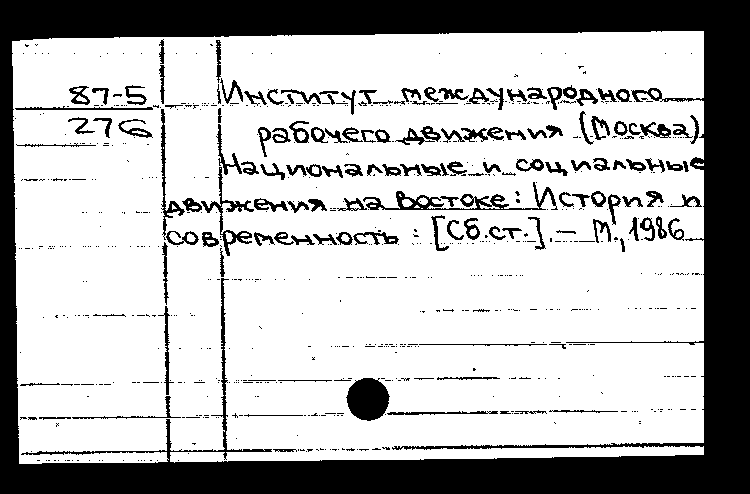 87-5
276
Институт международного
рабочего движения (Москва)
Национальные и социальные
движения на Востоке: История и
современность : [Сб.ст.]. – М., 1986